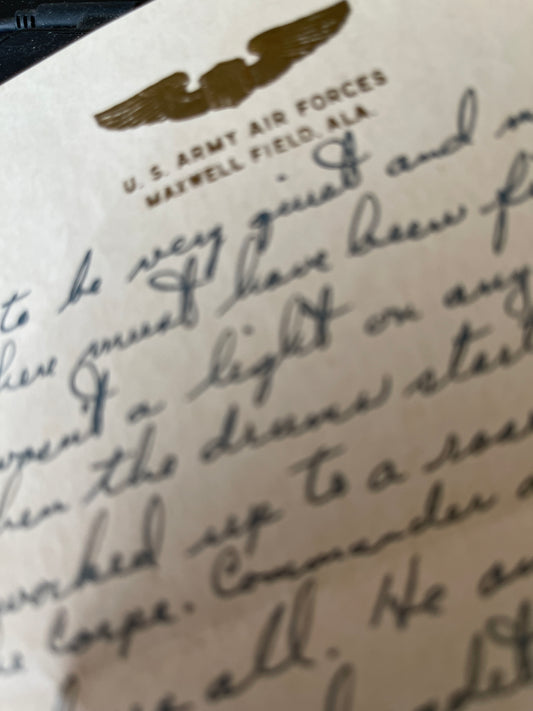 U. S. ARMY AIR FORCES
MAXWELL FIELD, ALA.
to be very quiet and
must have been
a light on any
the drums start
worked up to a roar
Corps. Commander
all. He